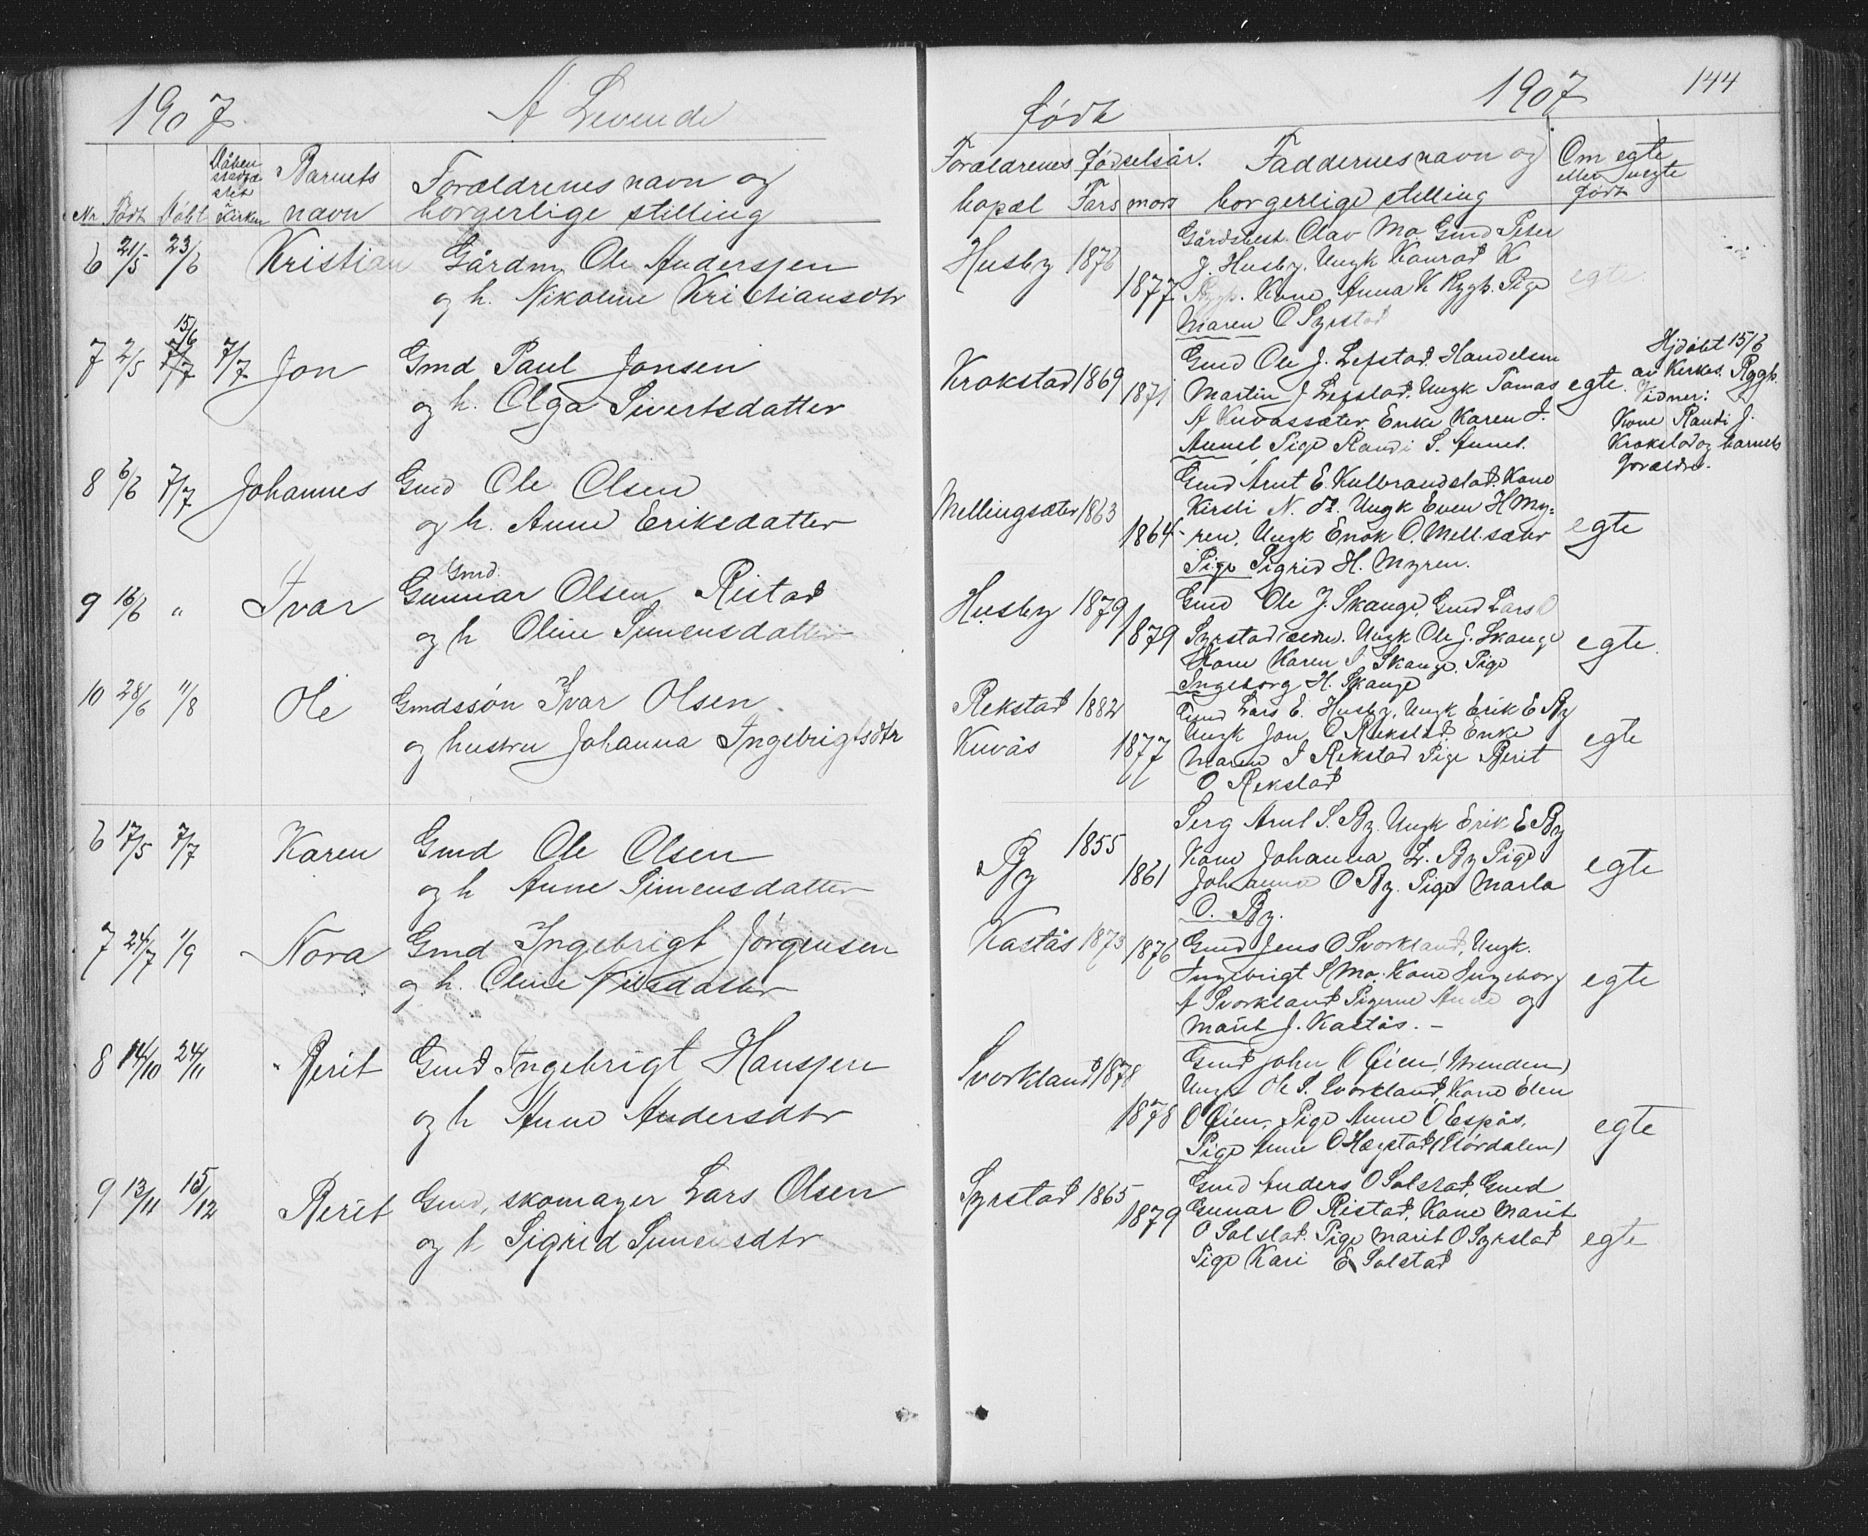 1907. A Levende
Nr. Født Døbt Dåben stadfæstet i Kirken Barnets navn Forældrenes navn og borgerlige stilling
6 21/5 23/6 Kristian Gårdm. Ole Anderssen
og h. Nikoline Kristiansdtr
7 2/5 15/6 7/7 7/7 Jon Gmd Paul Jonsen
og h. Olga Sivertsdatter
8 6/6 7/7 Johannes Gmd Ole Olsen
og h. Anne Eriksdatter
9 16/6 " Ivar Gmd. Gunnar Olsen Ristad
og h Oline Simensdatter
10 28/6 11/8 Ole Gmdssøn Ivar Olsen
og hustru Johanna Ingebrigtsdtr
6 17/5 7/7 Karen Gmd Ole Olsen
og h Anne Simensdatter
7 24/7 1/9 Nora Gmd Ingebrigt Jørgensen
og h. Oline Nilsdatter
8 14/10 24/11 Berit Gmd Ingebrigt Hanssen
og h Anne Andersdtr
9 13/11 15/12 Berit Gmd, skomager Lars Olsen
og h Sigrid Simensdtr
født 1907 144
Forældrenes bopæl fødselsår. Fars mors Faddernes navn og borgerlige stilling Om egte eller uegte født
Husby 1876 1877 Gårdsbest. Olav Mo Gmd Peter
J. Husby. Ungk Konrad K
Rygh. Kone Anna K Rygh. Pige
Maren O Syrstad
egte.
Krokstad 1869 1871 Gmd Ole J. Lefstad. Handelsm
Martin J Lefstad. Ungk Tomas
A Kuvassæter. Enke Karen J.
Aunel Pige Randi S. Aunet.
egte.
Hjdøbt 15/6
av Kirkes. Rygh.
Vidner:
Kone Randi J.
Krokstad og barnets
forældre.
Mellingsæter 1863 1864 Gmd Arnt E. Kulbrandstad. Kone
Kirsti N. st. Ungk Even H My=
ren. Ungk Enok O. Mell.sæter
Pige Sigrid H. Myren.
egte
Husby 1879 1879 Gmd Ole J. Skauge. Gmd Lars O
Syrstad Ungk Ole J. Skauge
Kone Karen S Skauge. Pige
Ingeborg H. Skauge
egte.
Rekstad 1882
Kuvås 1877 Gmd Lars E. Husby. Ungk Erik E By
Ungk Jon O Rekstad. Enke
Maren J Rekstad Pige Berit
O Rekstad
egte
By 1855 1861 Serg Arnt S. By. Ungk Erik E By
Kone Johanna L. By Pige
Johanna O By. Pige Marta
O. By.
egte
Kastås 1873 1876 Gmd Jens O Svorkland, Ungk.
Ingebrigt S Mo. Kone Ingeborg
A Svorkland Pigerne Anne og
Marit J. Kastås. –
egte
Svorkland 1878 1878 Gmd John O Øien (Meldalen)
Ungk Ole S. Svorkland, Kone Elen
O Øien, Pige Anne O Espås,
Pige Anne O Hægstad (Størdalen)
egte
Syrstad 1865 1879 Gmd Anders O Solstad, Gmd
Gunnar O Ristad, Kone Marit
O Solstad. Pige Marit O Syrstad
Pige Kari E Solstad
egte